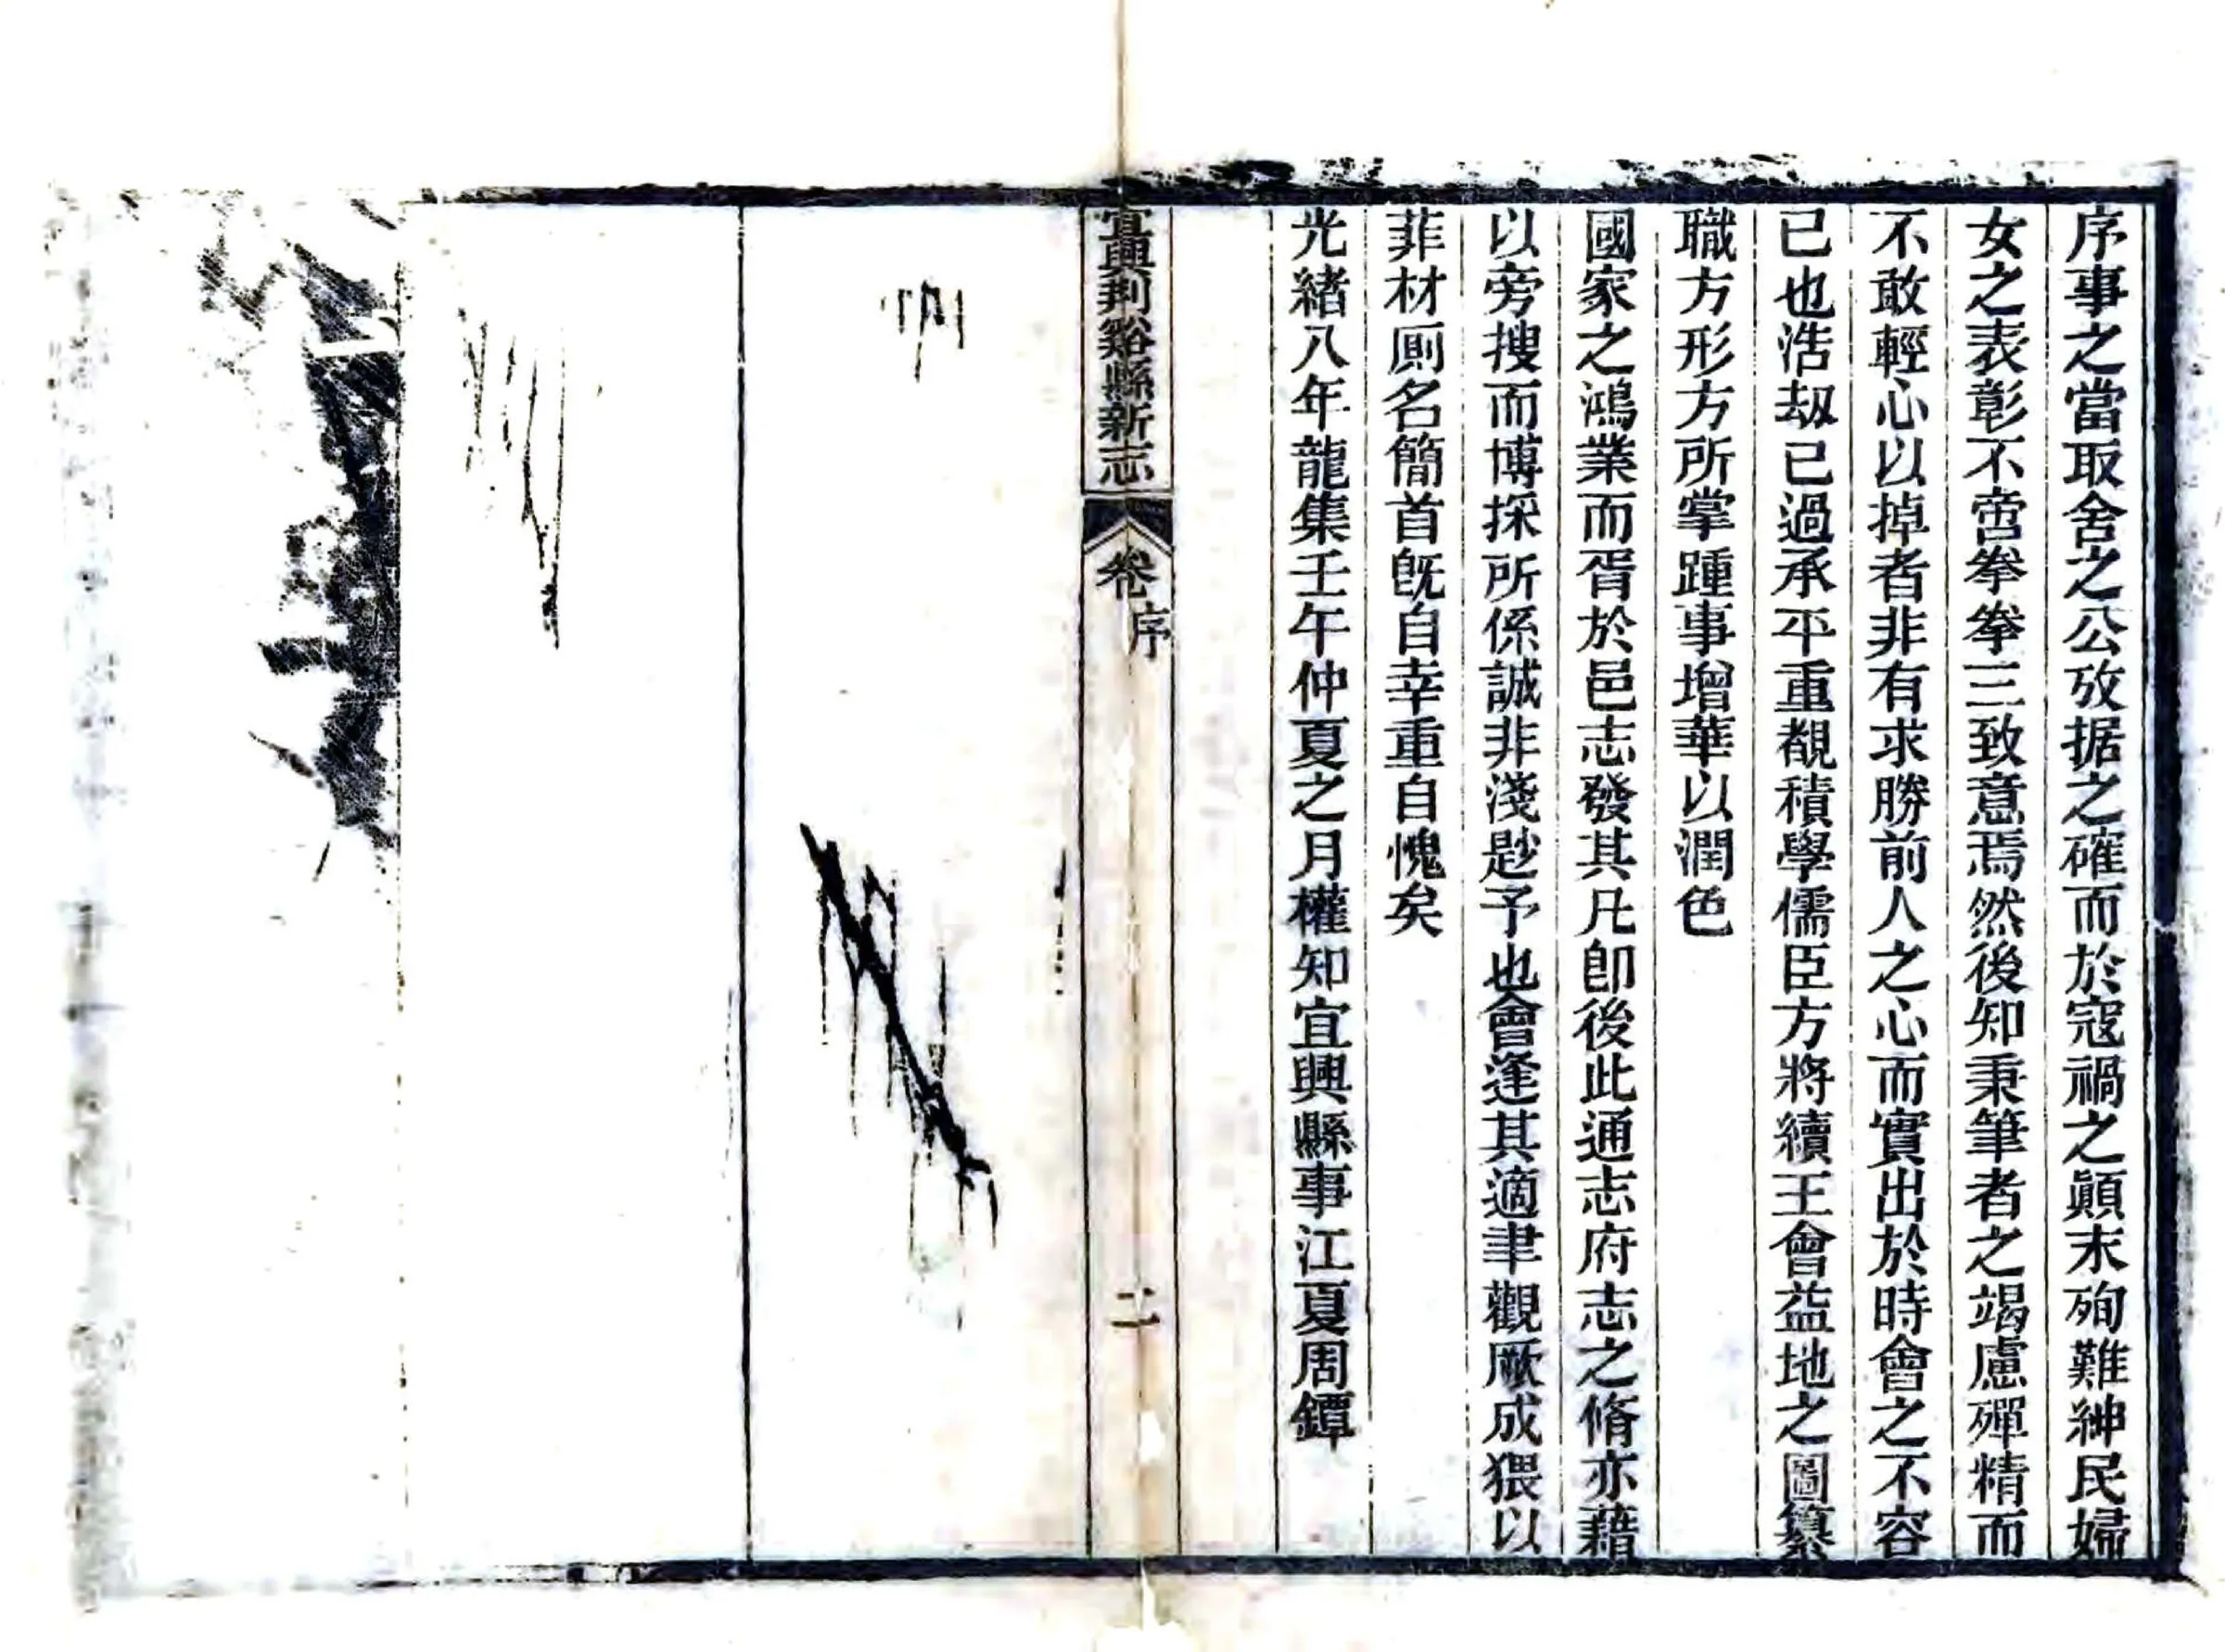 序事之當取舍之公攷据之確而於寇禍之顚末殉難紳民婦
女之表彰不啻拳拳三致意焉然後知秉筆者之竭慮殫精而
不敢輕心以掉者非有求勝前人之心而實出於時會之不容
已也浩刼已過承平重覩積學儒臣方將續王會益地之圖纂
職方形方所掌踵事增華以潤色
國家之鴻業而胥於邑志發其凡卽後此通志府志之脩亦藉
以旁搜而博採所係誠非淺尟予也會逢其適聿觀厥成猥以
菲材厠名簡首旣自幸重自愧矣
光緒八年龍集壬午仲夏之月權知宜興縣事江夏周鐔
宜興荆谿縣新志
卷
序
二